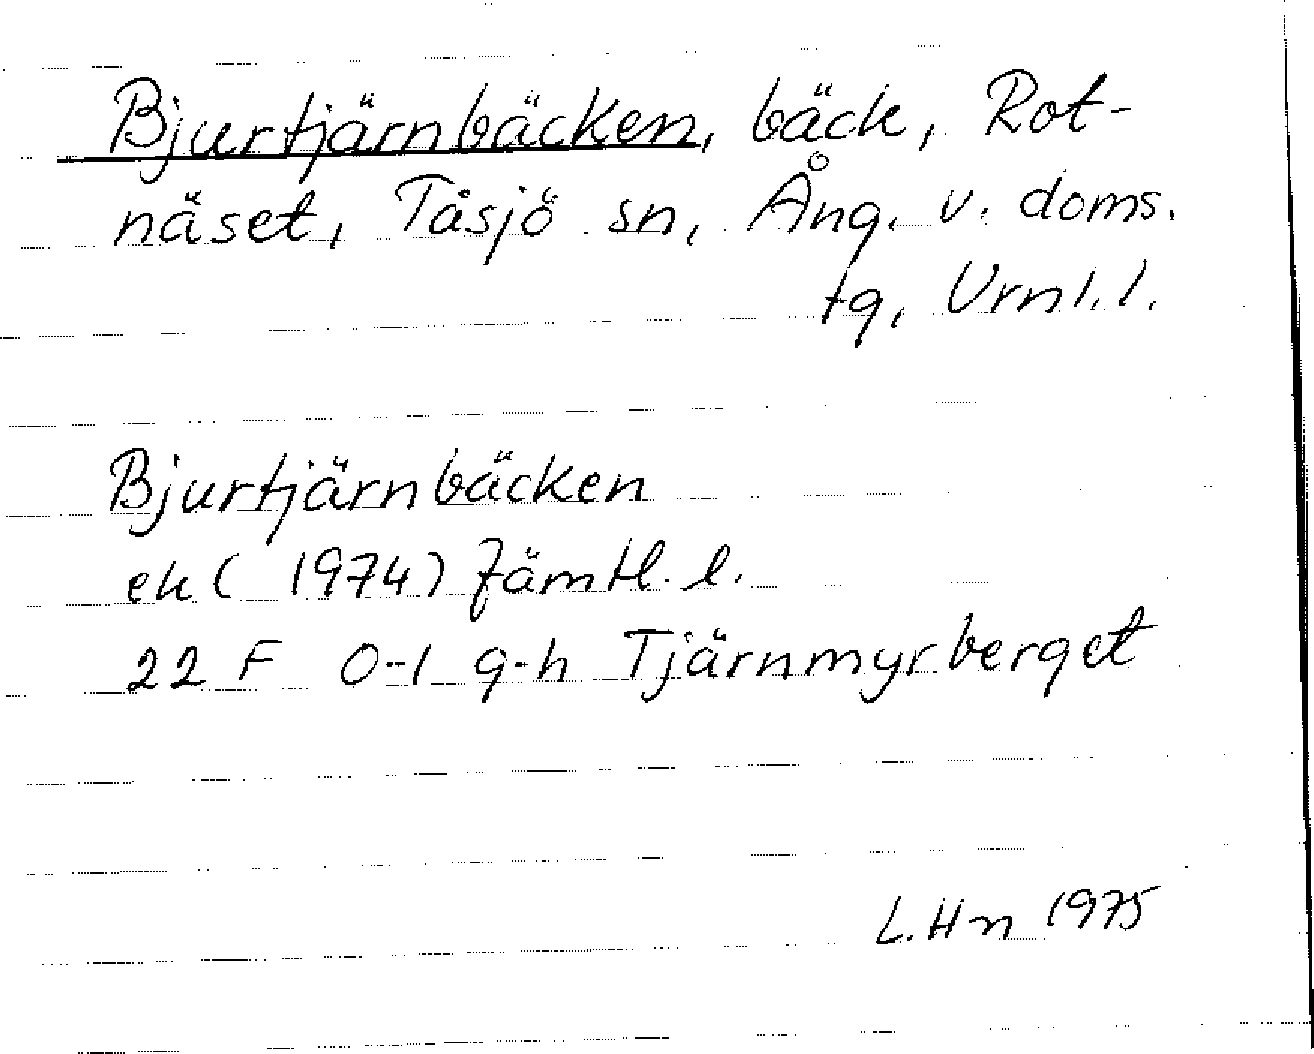 Bjurtjärnbäcken, bäck, Rot-
näset, Tåsjö sn, Ång. v. doms.
tg, Vrnl.l.
Bjurtjärnbäcken
ek (1974) Jämtl. l.
22 F 0-1 g-h Tjärnmyrberget
L.Hn 1975